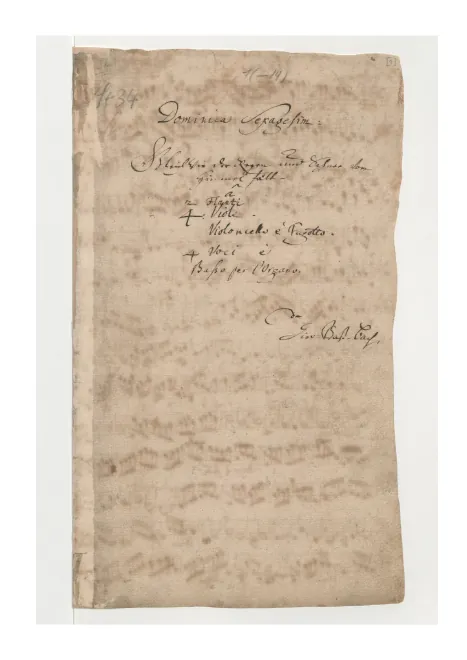 Dominica Sexagesim:
Gleichwie der Regen und Schnee vom
Himmel fällt
à
2 Flauti
4 Viole.
Violoncello è Fagotto.
4 Voci è
Basso per l'Organo.
da
Giov. Bast. Bach.